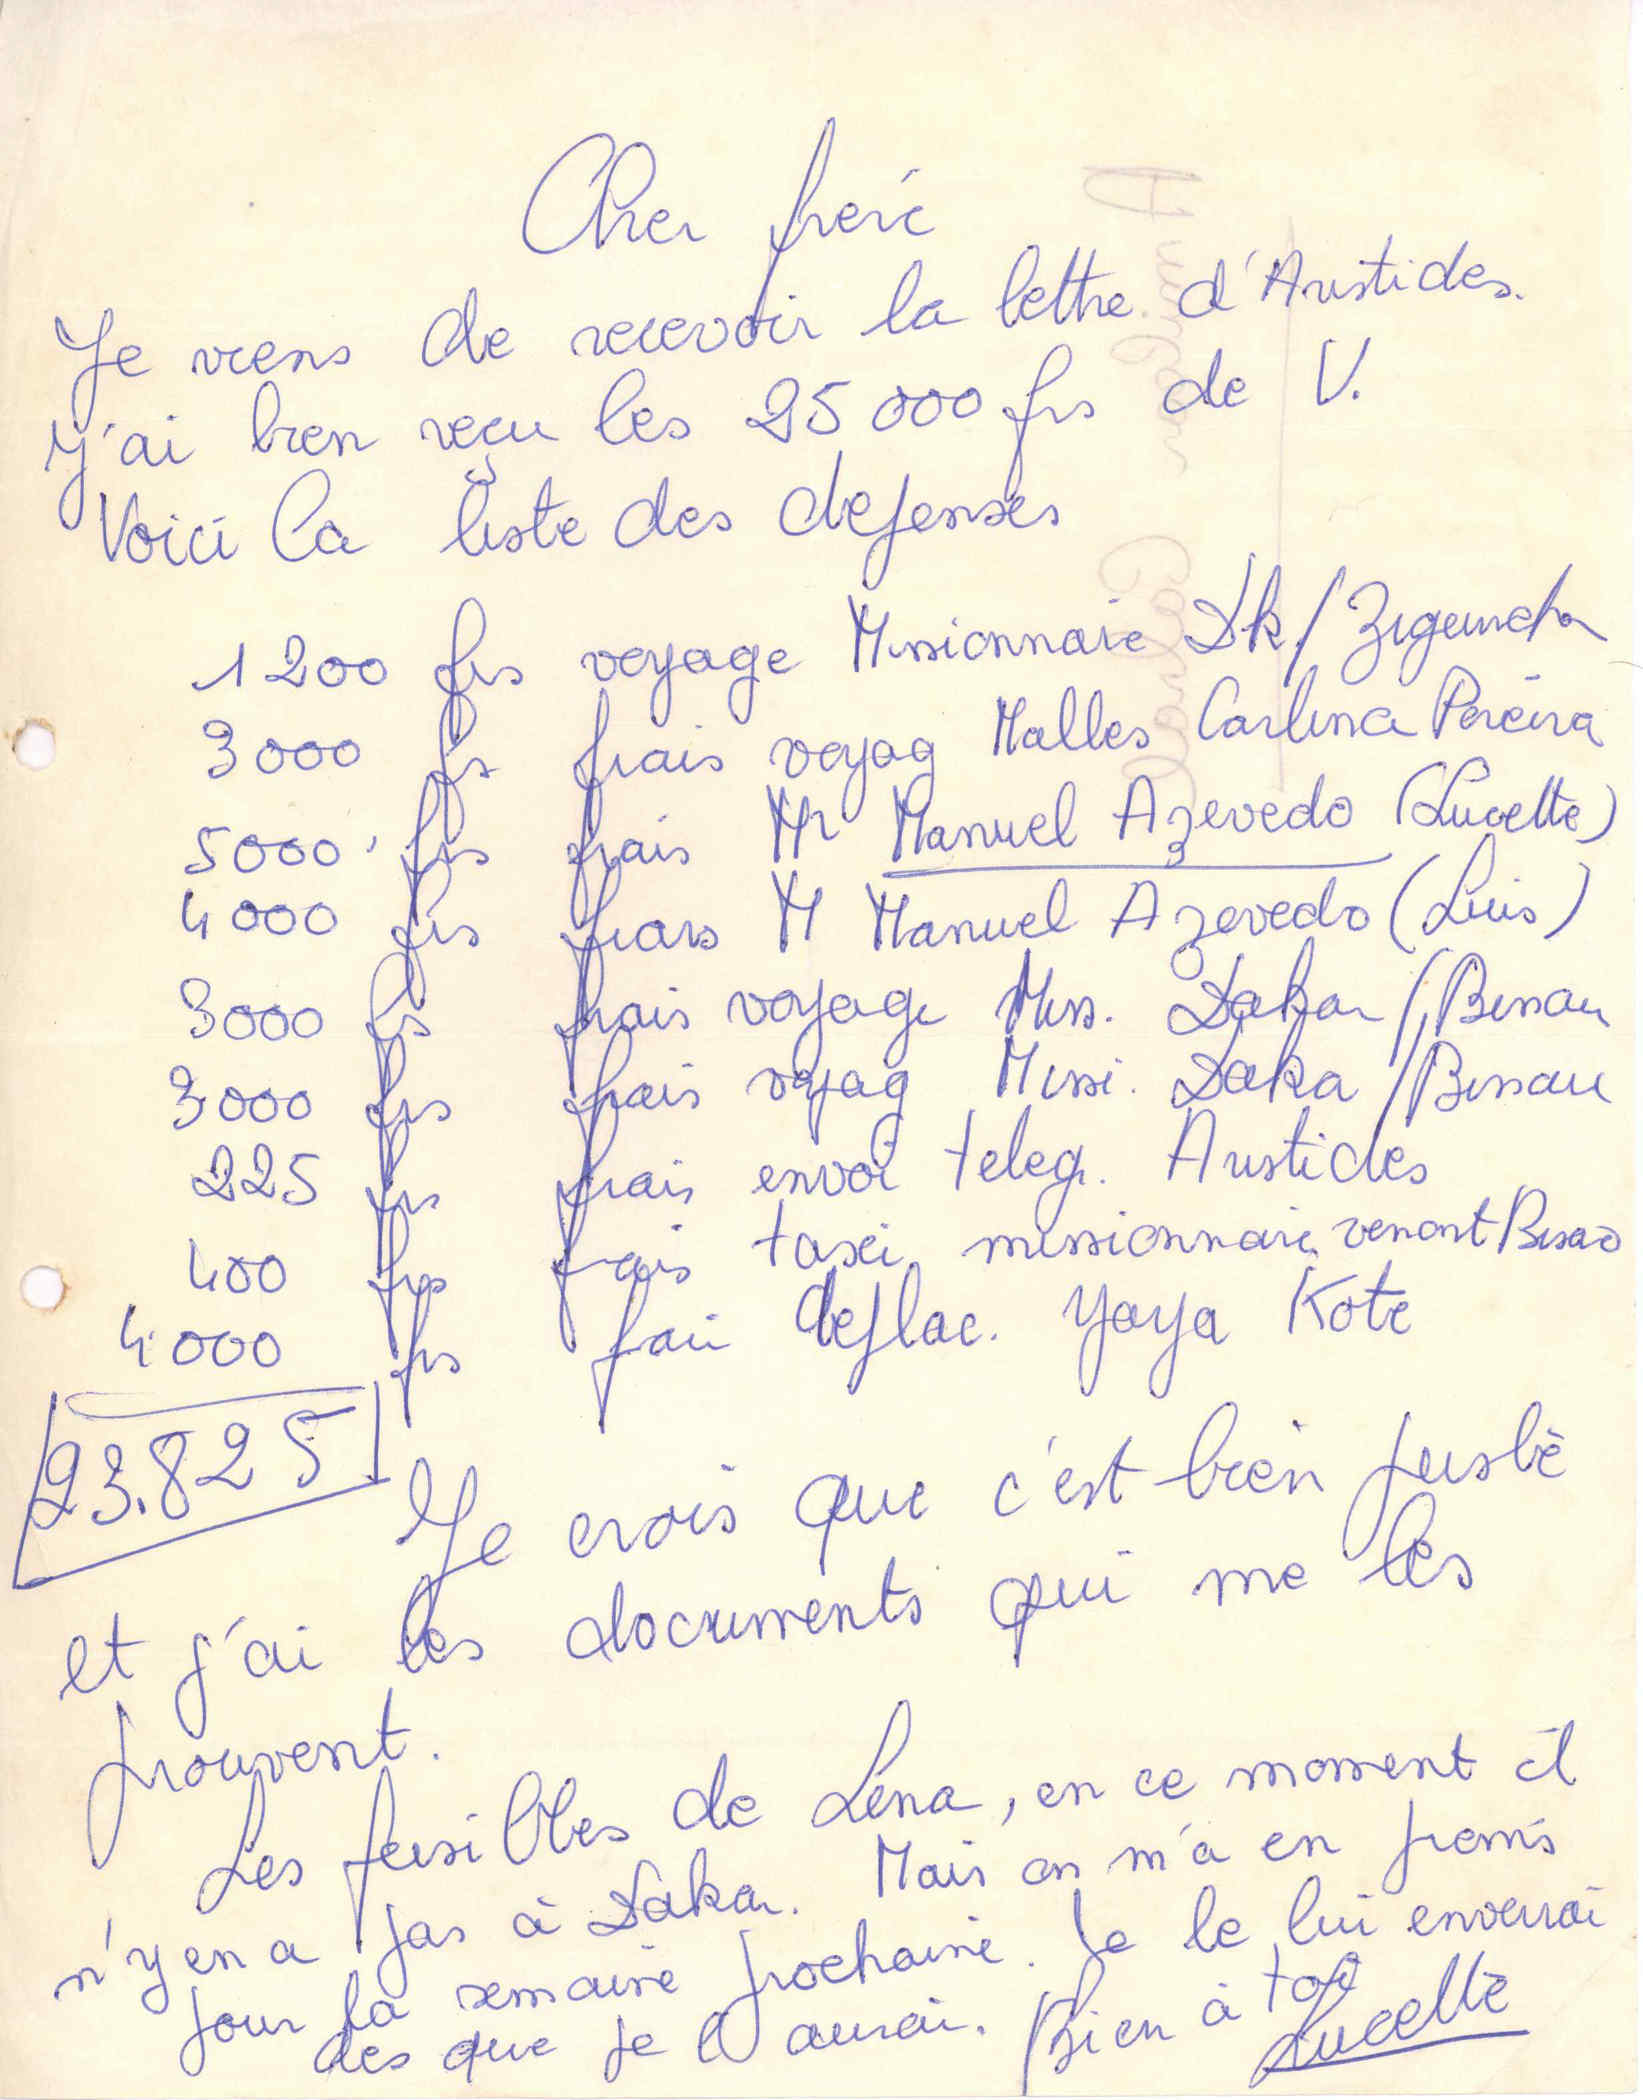 Cher frère
Je viens de recevoir la lettre d'Aristides.
J'ai bien reçu les 25 000 frs de V.
Voici la liste des depenses
1 200 frs voyage Missionnaire Dk/Ziguincho
3 000 frs frais voyag Malles Carlina Pereira
5000 frs frais Mr Manuel Azevedo (Lucette)
4 000 frs frais M Manuel Azevedo (Luis)
3000 frs frais voyage Miss. Dakar/Bissau
3000 frs frais voyag Missi. Daka/Bissau
225 frs frais envoi teleg. Aristides
400 frs frais taxi missionnaire venant Bissao
4000 frs frai deplac. Yaya Kote
23.825
Je crois que c'est bien juste
et j'ai les documents qui me les
prouvent.
Les fusibles de Léna, en ce moment il
n'y en a pas à Dakar. Mais on m'a en promis
pour la semaine prochaine. Je le lui enverrai
des que je l'aurai. Bien à toi
Lucette